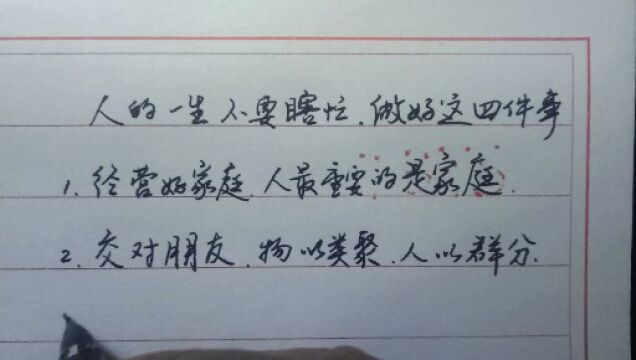 人的一生不要瞎忙.做好这四件事
1.经营好家庭.人最重要的是家庭.
2.交对朋友.物以类聚.人以群分.